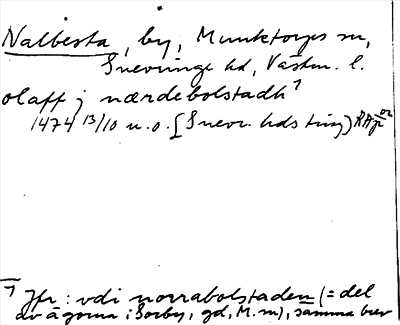 Nalbesta, by, Munktorps sn,
Snevringe hd, Västm. l.
olaff j nærdebolstadh¹
1474 13/10 u.o. [Snevr. hds ting) RAp or
¹ Jfr: vdi norrabolstaden (= del
av ägorna i Sorby, gd, M. sn), samma brev